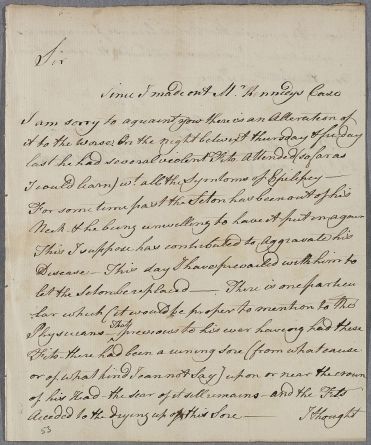 Sir
Since I made out Mr. Kennedys Case
I am sorry to aquaint you there is an Alteration of
it to the worse. On the night betwixt thursday & friday
last he had several violent Fits Attended (so far as
I could learn) wt. all the Symtoms of Epilepsy —
For some time past the Seton has been out of his
Neck & he being unwilling to have it put in again
This I suppose has contributed to Aggravate his
Disease — This day I have prevailed with him to
let the Seton be replaced — There is one particu
lar which (it would be proper to mention to the
Physicians — That previous to his ever having had these
Fits there had been a runing sore (from what cause
or of what kind I cannot say) upon or near the crown
of his Head — the scar of it still remains — and the Fits
Acceded to the drying up of this Sore — I thought
53